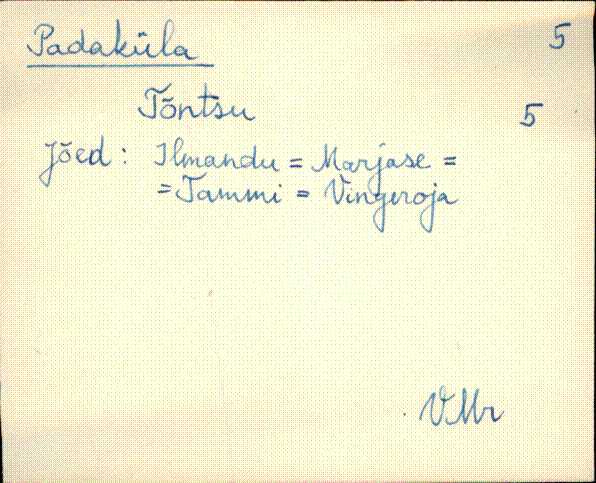 Padaküla 5
Tõntsu 5
Jõed: Ilmandu = Marjase =
= Tammi = Vingeroja
VMr